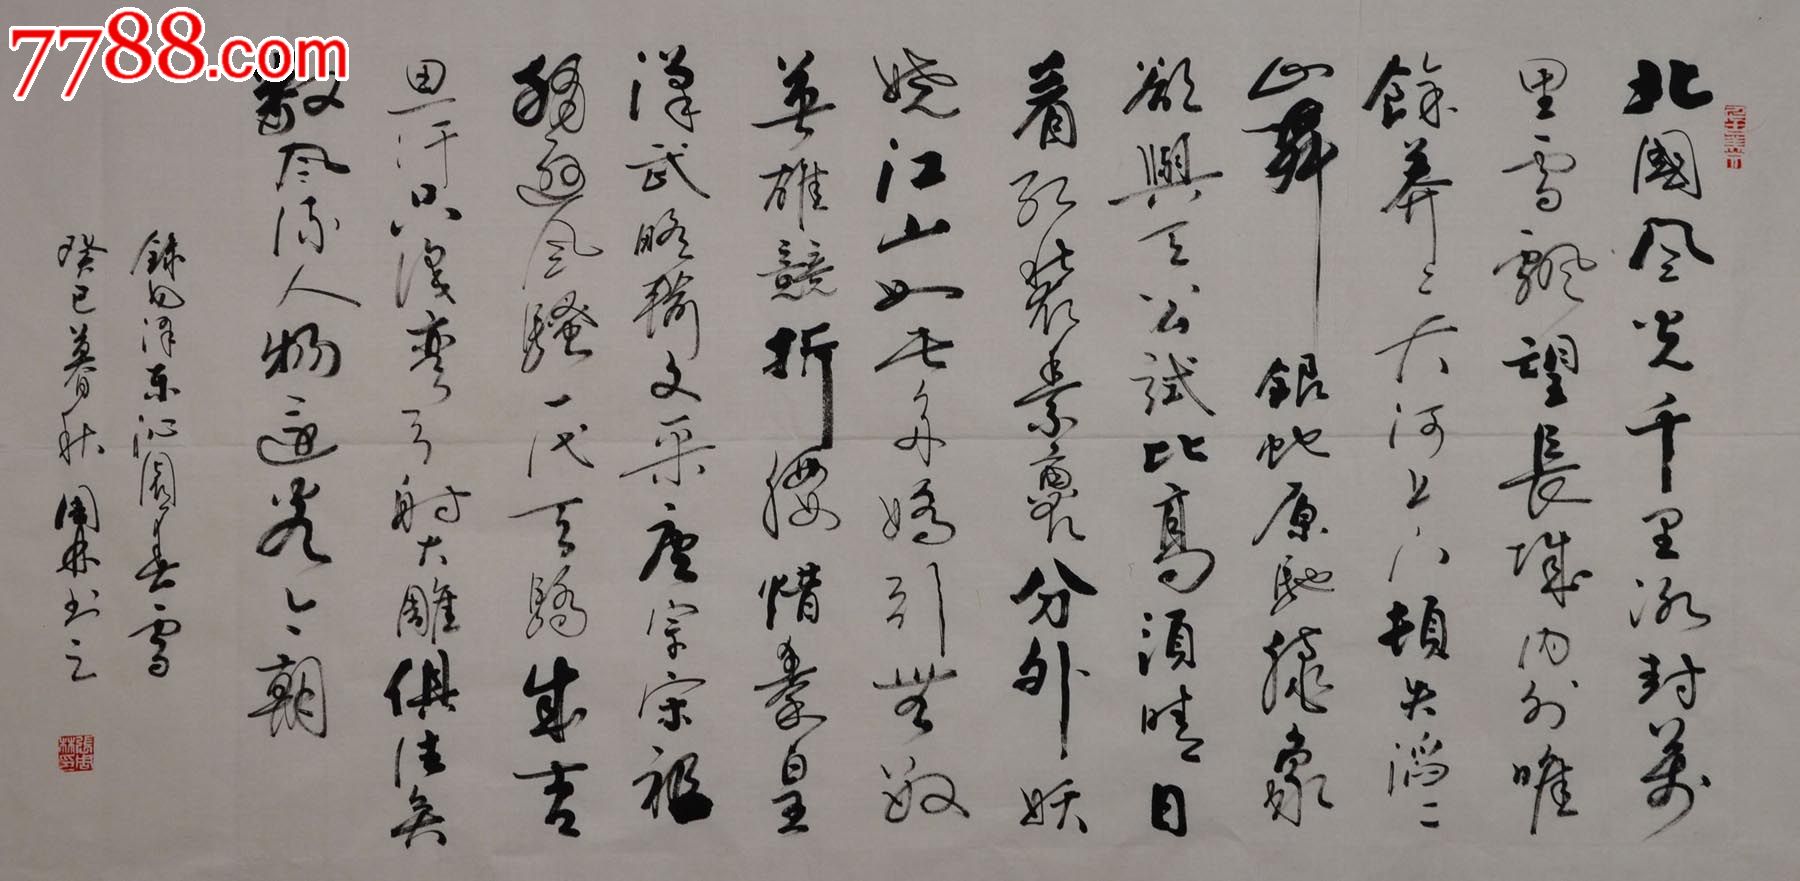 7788.com
北國风光千里冰封萬
里雪飘望長城内外唯
餘莽〻大河上下頓失滔〻
山舞銀蛇原馳蠟象
欲與天公試比高須晴日
看紅裝素裹分外妖
嬈江山如此多嬌引無數
英雄競折腰惜秦皇
漢武略輸文采唐宗宋祖
稍遜风騷一代天驕成吉
思汗只識彎弓射大雕俱往矣
數风流人物还看今朝
錄毛澤東沁園春雪
癸巳暮秋周林书之